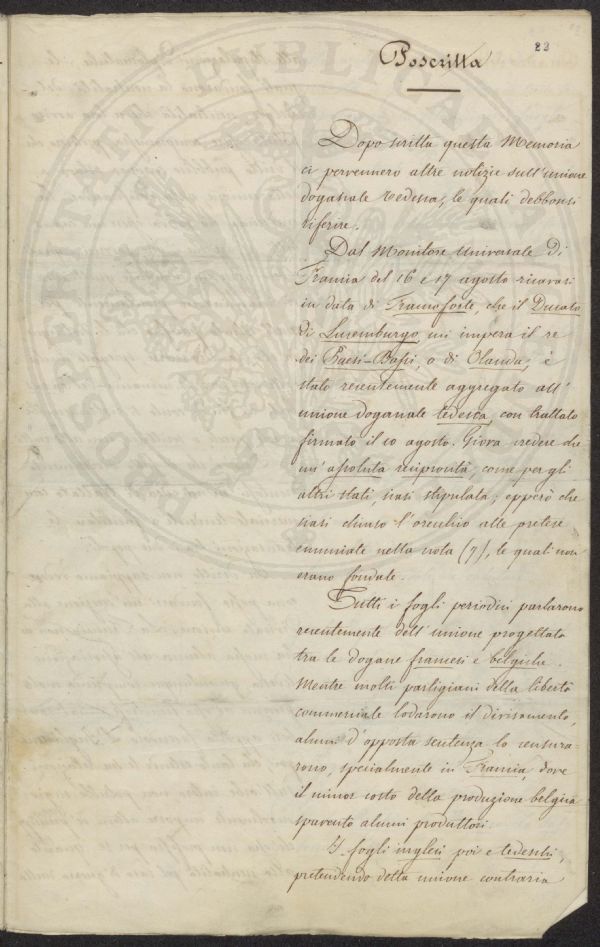 23
Poscritta
Dopo scritta questa Memoria
ci pervennero altre notizie sull'unione
doganale tedesca, le quali debbonsi
riferire.
Dal Monitore Universale di
Francia del 16 e 17 agosto ricavasi
in data di Francoforte, che il Ducato
di Luxemburgo, cui impera il re
dei Paesi-Bassi, o di Olanda, è
stato recentemente aggregato all'
unione doganale tedesca, con trattato
firmato il 10 agosto. Giova credere che
un'assoluta reciprocità, come per gli
altri stati, siasi stipulata; epperò che
siasi chiuso l'orecchio alle pretese
enunciate nella nota (7), le quali non
erano fondate.
Tutti i fogli periodici parlarono
recentemente dell'unione progettata
tra le dogane francesi e belgiche.
Mentre molti partigiani della libertà
commerciale lodarono il divisamento,
alcuni d'opposta sentenza lo censura-
rono, specialmente in Francia, dove
il minor costo della produzione belgica
spaventò alcuni produttori.
I fogli inglesi poi e tedeschi,
pretendendo detta unione contraria